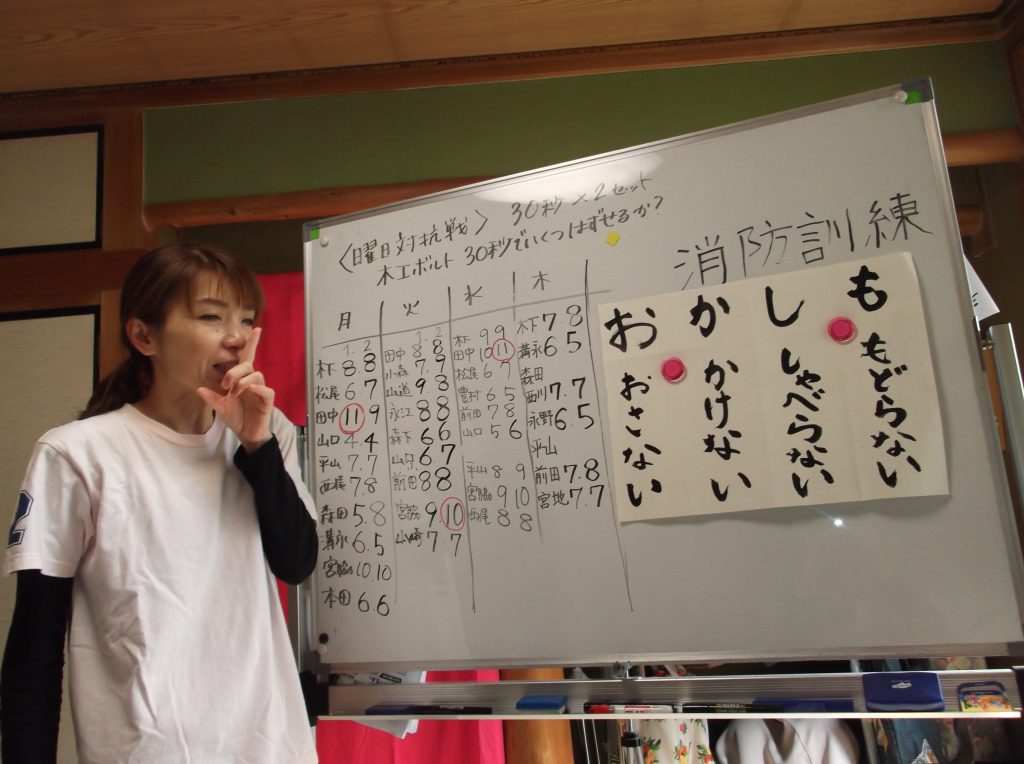 〈曜日対抗戦〉 30秒×2セット
木工ボルト 30秒でいくつはずせるか?
月
1. 2
木下 8.8
松尾 6.7
田中 11 9
山口 4.4
平山 7.7
西梶 7.8
森田 5.8
満永 6.5
宮脇 10.10
本田 6.6
火
1. 2
田中 8.8
小森 7.9
山道 9 8
永江 8 8
森下 6 6
6.7
前田 8 8
宮脇 9.10
山崎 7 7
水
木下 9 9
田中 10 11
松尾 6 7
豊村 6 5
前田 7 8
山口 5 6
平山 8 9
宮脇 9 10
西尾 8 8
木
木下 7.8
満永 6 5
森田
西川 7.7
永野 6.5
平山
前田 7.8
宮地 7.7
消防訓練
お おさない
か かけない
し しゃべらない
も もどらない